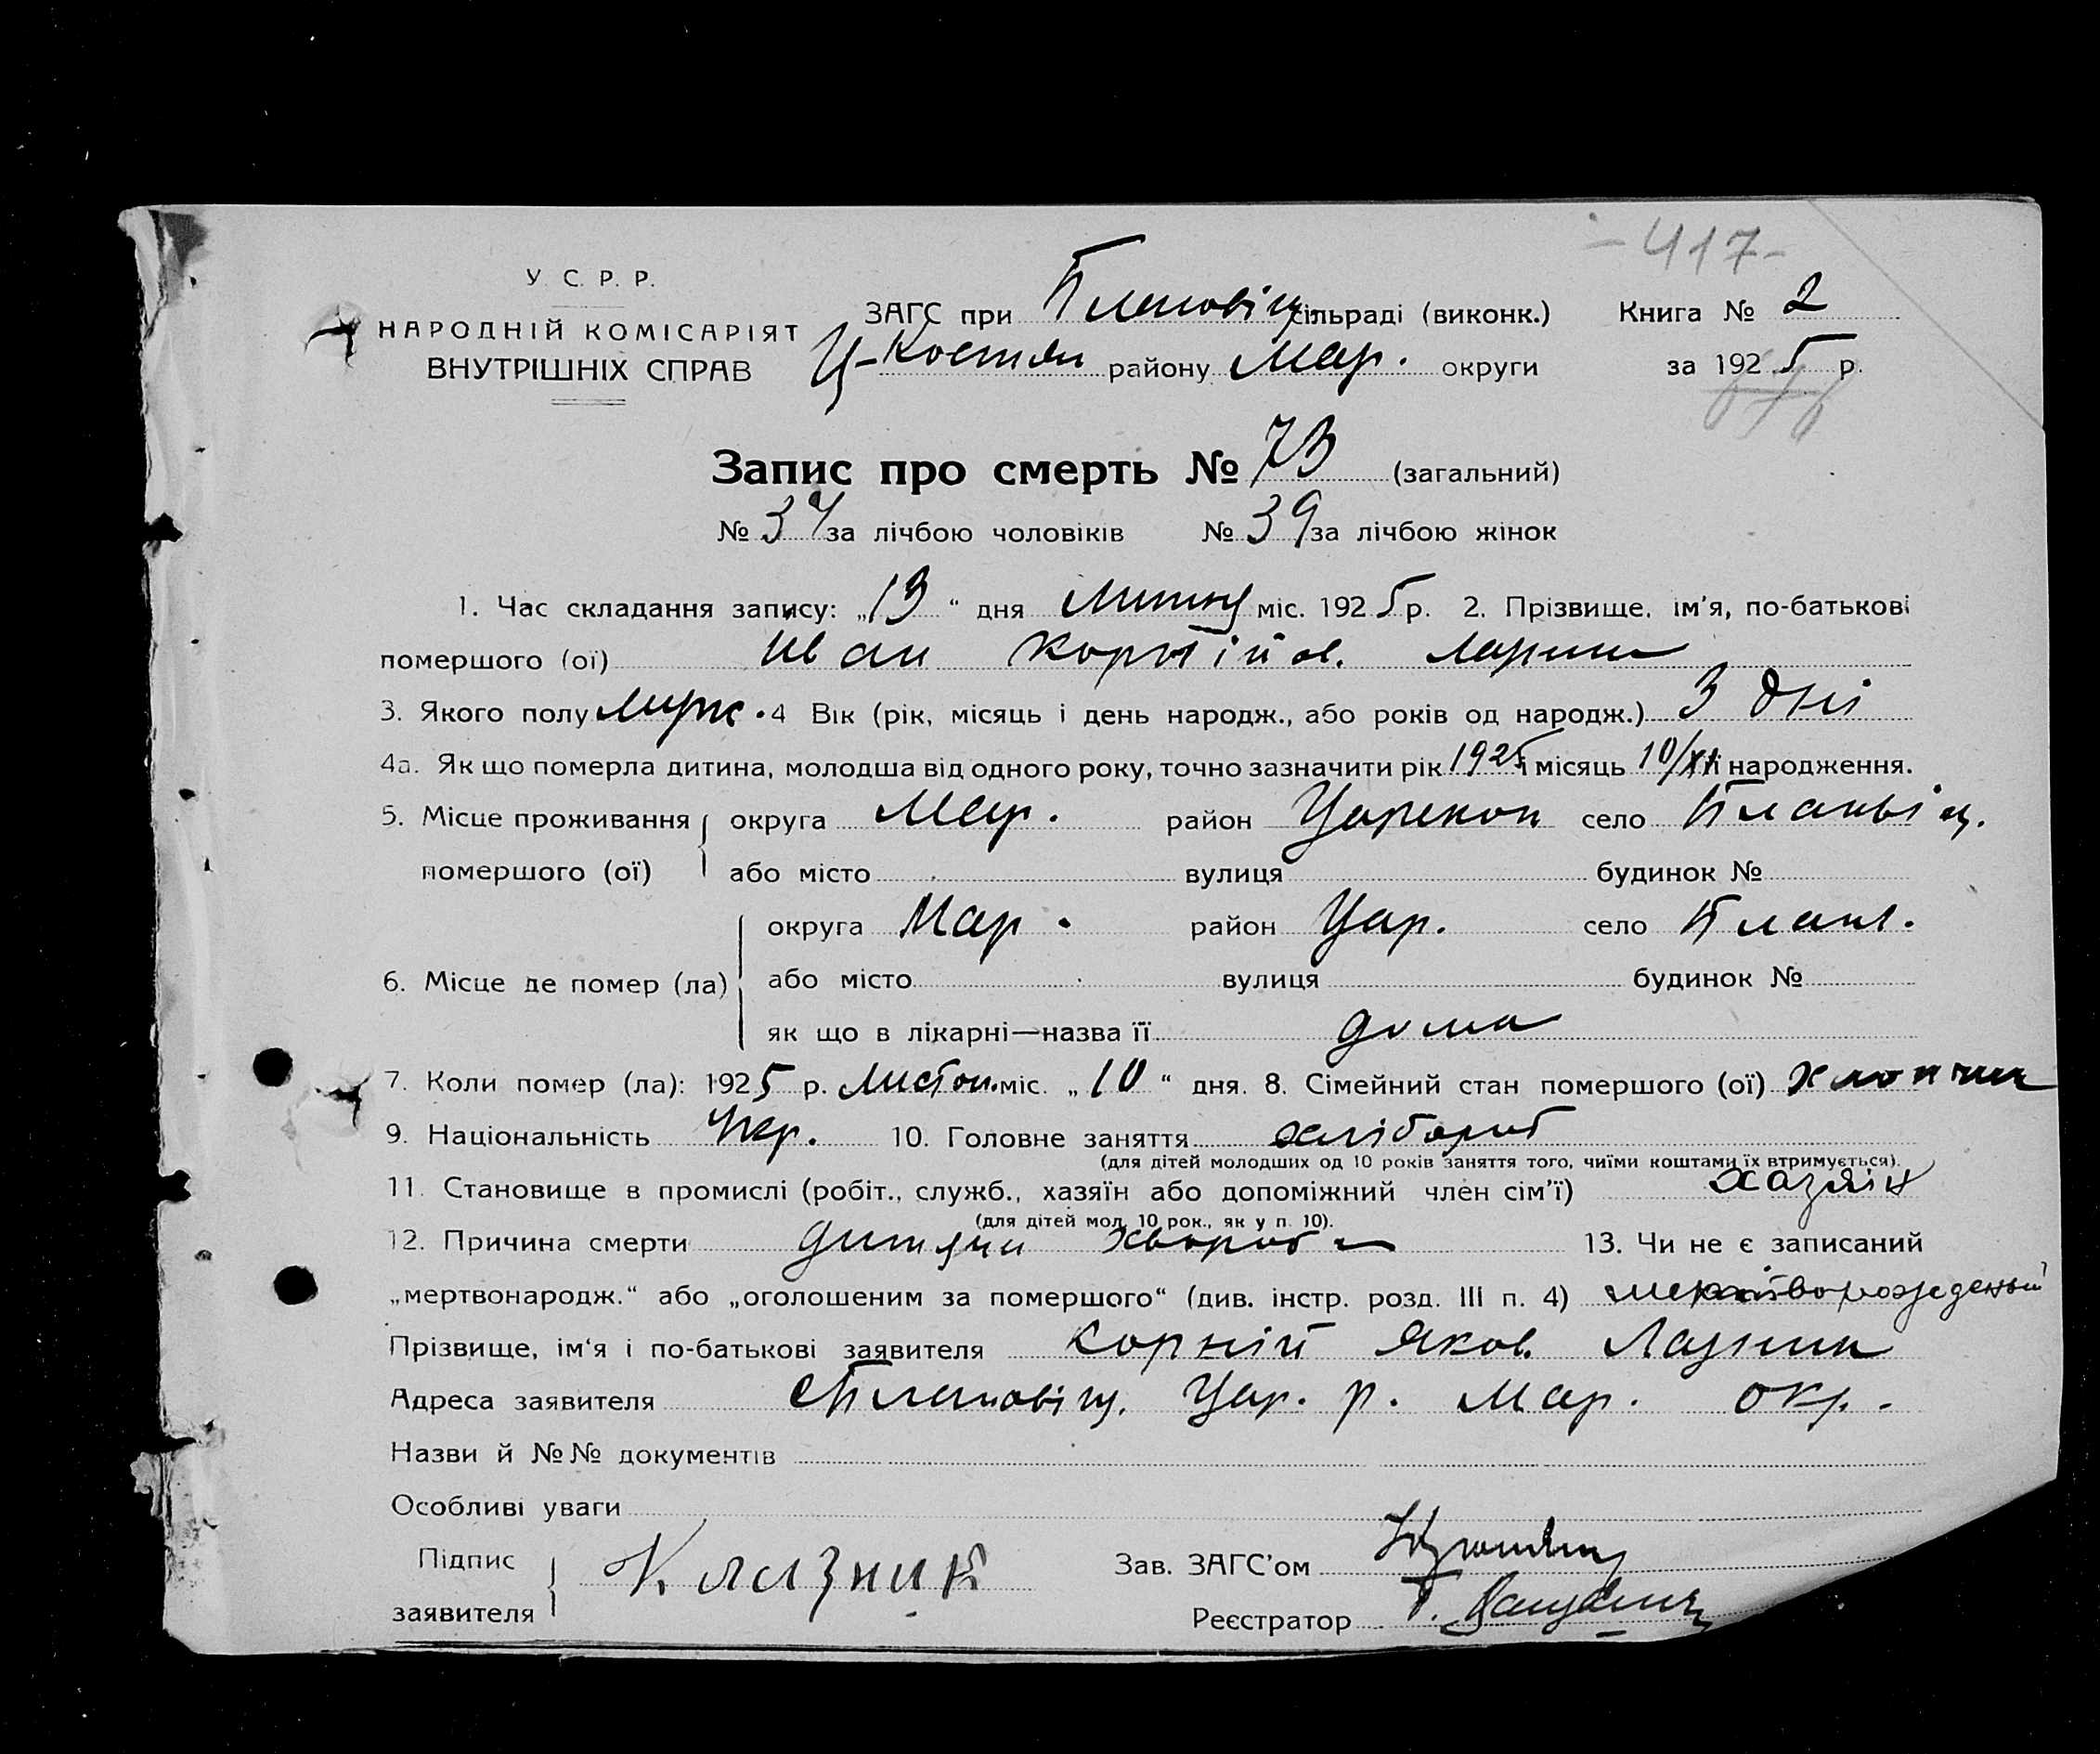 -417-
У. С. Р. Р.
НАРОДНІЙ КОМІСАРІЯТ
ВНУТРІШНІХ СПРАВ
ЗАГС при Плановіц. сільраді (виконк.) Книга № 2
Ц-Костян району Мар. округи за 1925 р.
Запис про смерть № 73 (загальний)
№ 34 за лічбою чоловіків № 39 за лічбою жінок
1. Час складання запису: „13“ дня міс. 1925 р. 2. Прізвище, ім'я, по-батькові
помершого (ої) Іван Корнійов. Лазник
3. Якого полу 4 Вік (рік, місяць і день народж., або років од народж.) 3 дні
4а. Як що померла дитина, молодша від одного року, точно зазначити рік 1925 і місяць 10/XI її народження.
5. Місце проживання помершого (ої) округа Мар. район Царекон село Планвіц.
або місто вулиця будинок №
6. Місце де помер (ла) округа Мар. район Цар. село План.
або місто вулиця будинок №
як що в лікарні—назва її дома
7. Коли помер (ла): 1925 р. Листоп. міс. „10“ дня. 8. Сімейний стан помершого (ої) хлопчик
9. Національність Укр. 10. Головне заняття хлібороб
(для дітей молодших од 10 років заняття того, чиїми коштами їх втримується).
11. Становище в промислі (робіт., служб., хазяїн або допоміжний член сім'ї) хазяїн
(для дітей мол. 10 рок., як у п. 10).
12. Причина смерти дитячи хвороба 13. Чи не є записаний
„мертвонародж.“ або „оголошеним за помершого“ (див. інстр. розд. III п. 4) мертворожденый
Прізвище, ім'я і по-батькові заявителя Корній Яков. Лазник
Адреса заявителя с Плановіц. Цар. р. Мар. окр.
Назви й №№ документів
Особливі уваги
Підпис заявителя К Лазник
Зав. ЗАГС'ом
Реєстратор